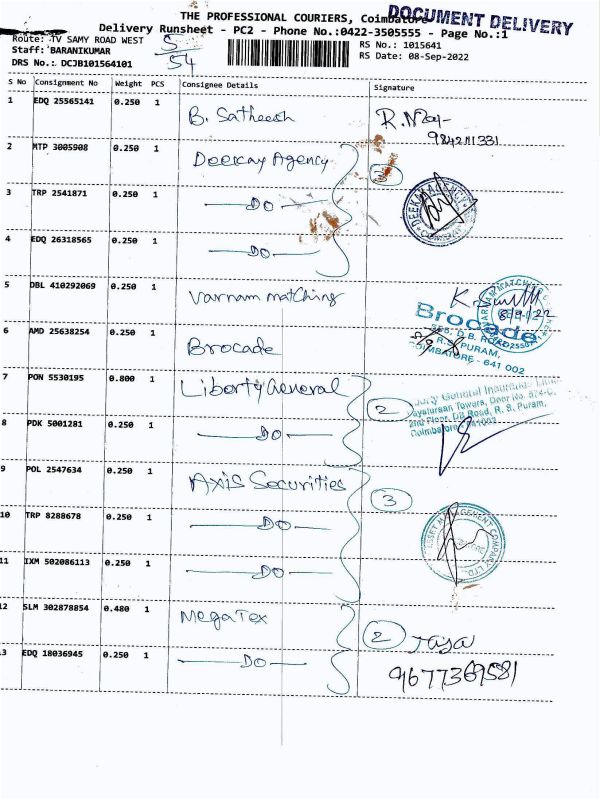 THE PROFESSIONAL COURIERS, Coimbatore
DOCUMENT DELIVERY
Delivery Runsheet - PC2 - Phone No.:0422-3505555 - Page No.:1
Route: TV SAMY ROAD WEST
Staff: BARANIKUMAR
DRS No.: DCJB101564101
5/54
RS No.: 1015641
RS Date: 08-Sep-2022
S No Consignment No Weight PCS Consignee Details Signature
1 EDQ 25565141 0.250 1 B. Satheesh
9842111331
2 MTP 3005908 0.250 1 Deekay Agency
3 TRP 2541871 0.250 1 DO
3
DEEKAY AGENCY
4 EDQ 26318565 0.250 1 DO
5 DBL 410292069 0.250 1 Varnam matching
8/9/22
VARNAM MATCHING
6 AMD 25638254 0.250 1 Brocade
Brocade
D.B. ROAD
R.S. PURAM,
COIMBATORE - 641 002
7 PON 5530195 0.800 1 Liberty General
2
General Insurance
Towers, Door No.
2nd Floor, DB Road, R. S. Puram,
Coimbatore 641002
8 PDK 5001281 0.250 1 DO
9 POL 2547634 0.250 1 Axis Securities
3
10 TRP 8288678 0.250 1 DO
ASSET MANAGEMENT COMPANY LTD.
11 IXM 502086113 0.250 1 DO
12 SLM 302878854 0.480 1 MegaTex
2 Jaya
13 EDQ 18036945 0.250 1 DO
9677369581